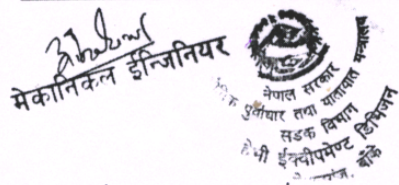 मेकानिकल ईन्जिनियर
नेपाल सरकार
पूर्वाधार तथा यातायात मन्त्रालय
सडक विभाग
ईक्वीपमेण्ट डिभिजन
बाँके